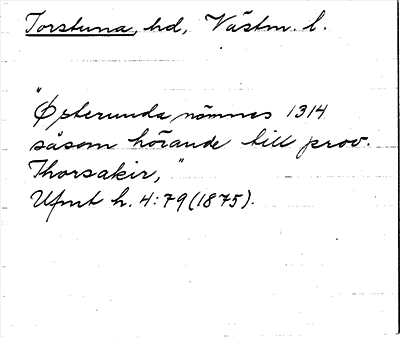 Torstuna, hd, Västm. l.
"Østerunda nämnes 1314
såsom hörande till prov.
Thorsakir,"
Ufmt h. 4:79 (1875).